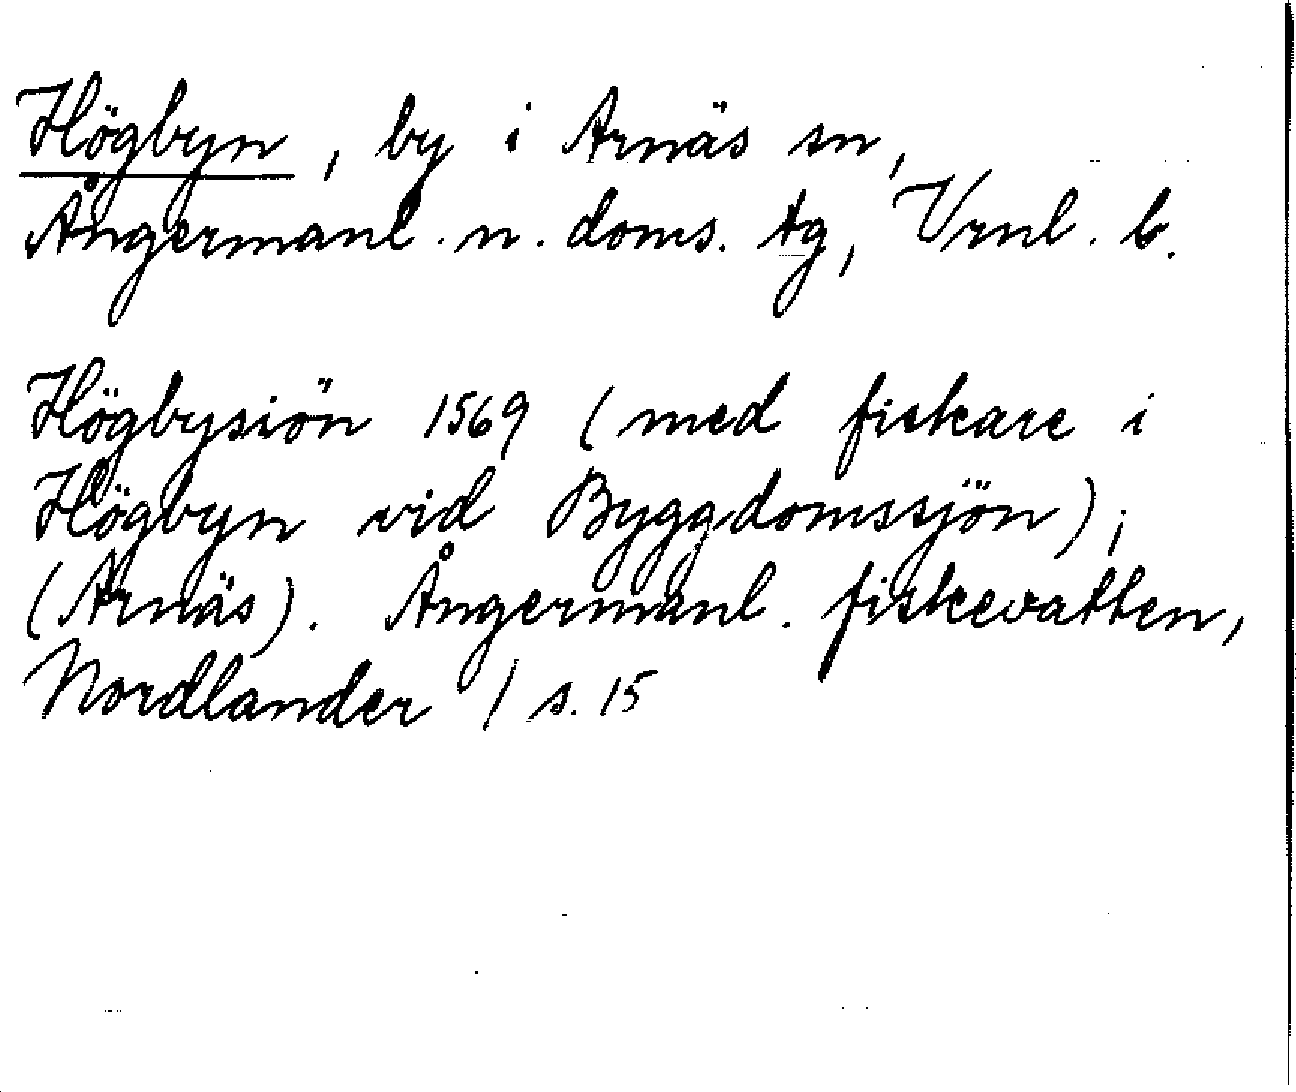 Högbyn, by i Arnäs sn,
Ångermanl. n. doms. tg, Vrnl. b.
Högbysiön 1569 (med fiskare i
Högbyn vid Byggdomssjön);
(Arnäs). Ångermanl. fiskevatten,
Nordlander / s. 15